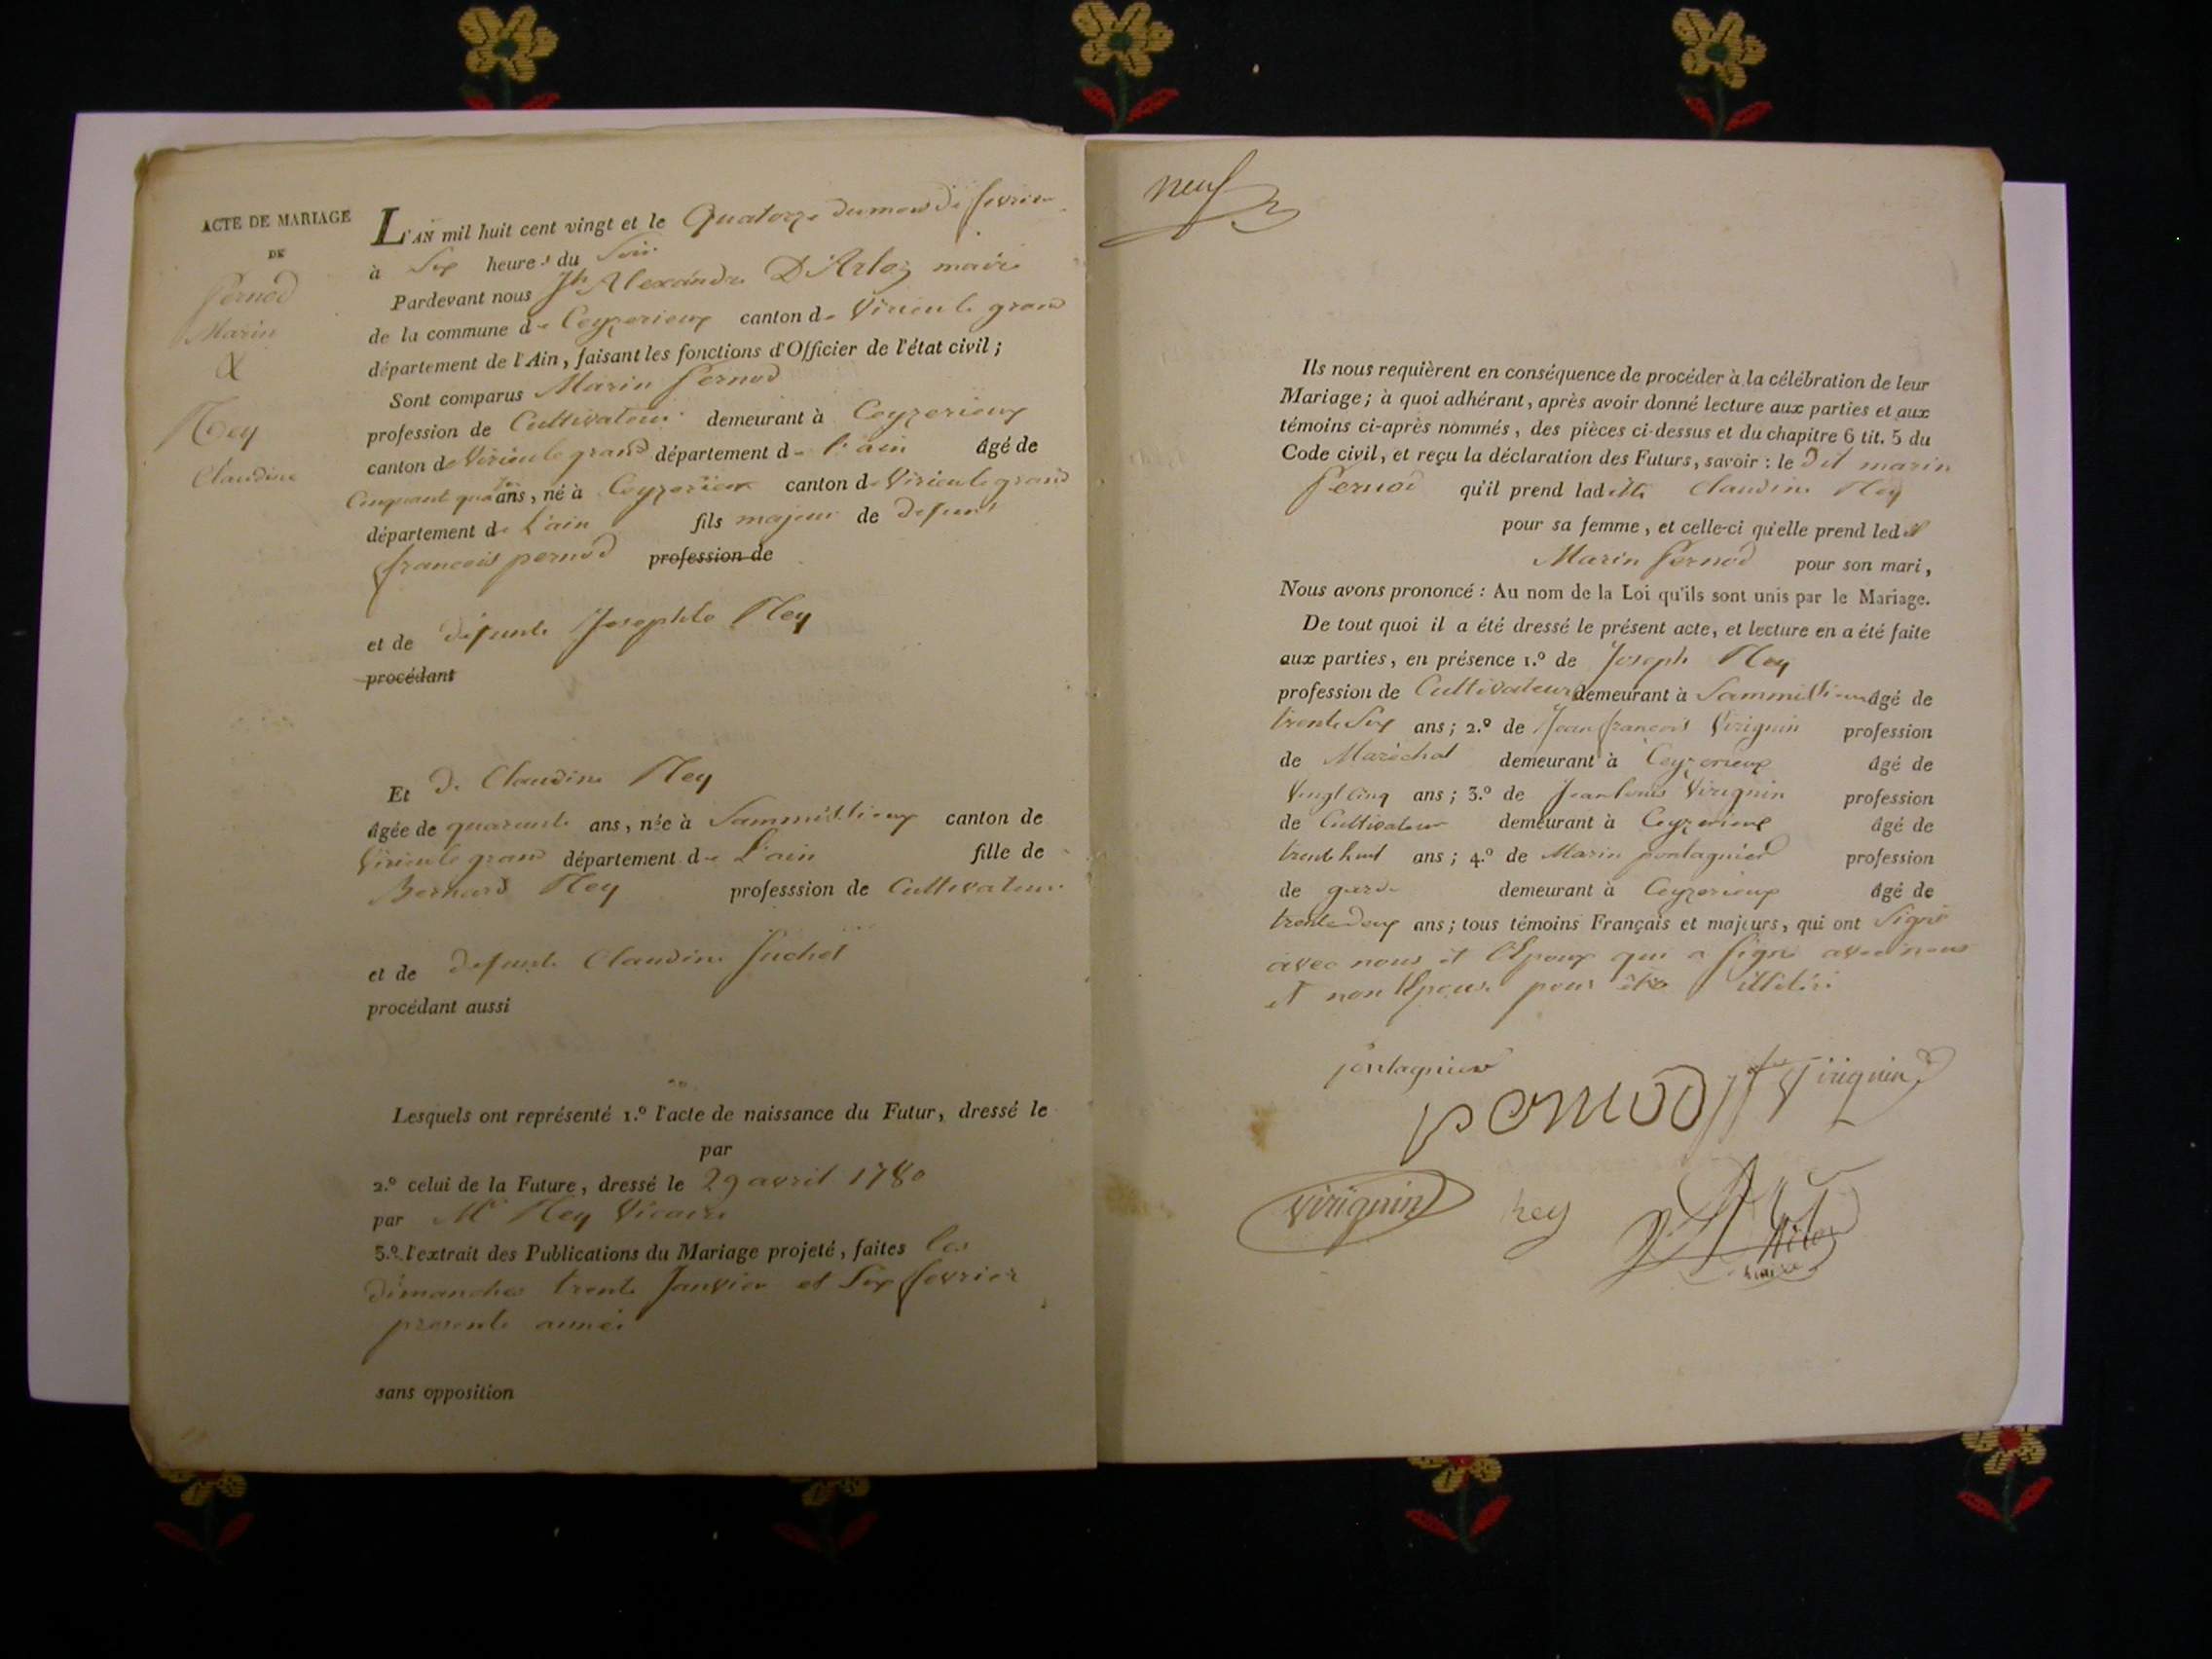 ACTE DE MARIAGE
DE
Pernod
Marin
&
Ney
Claudine
L'AN mil huit cent vingt et le Quatorze du mois de fevrier
à Six heures du Soir
Pardevant nous Jh Alexandre D'Arloz maire
de la commune de Ceyzerieux canton de Virieu le grand
département de l'Ain, faisant les fonctions d'Officier de l'état civil;
Sont comparus Marin Pernod
profession de Cultivateur demeurant à Ceyzerieux
canton de Virieu le grand département de l'ain âgé de
Cinquant quatre ans, né à Ceyzerieux canton de Virieu le grand
département de L'ain fils majeur de defunt
francois pernod profession de
et de defunte Josephte Ney
procédant
Et de Claudine Ney
âgée de quarante ans, née à Sammillieux canton de
Virieu le grand département de L'ain fille de
Bernard Ney professsion de Cultivateur
et de defunte Claudine Juchet
procédant aussi
Lesquels ont représenté 1.º l'acte de naissance du Futur, dressé le
par
2.º celui de la Future, dressé le 29 avril 1780
par Mr Ney Vicaire
3.º l'extrait des Publications du Mariage projeté, faites les
dimanches trente Janvier et Six fevrier
presente année
sans opposition
neuf
Ils nous requièrent en conséquence de procéder à la célébration de leur
Mariage; à quoi adhérant, après avoir donné lecture aux parties et aux
témoins ci-après nommés, des pièces ci-dessus et du chapitre 6 tit. 5 du
Code civil, et reçu la déclaration des Futurs, savoir: le dit marin
Pernod qu'il prend ladette Claudine Ney
pour sa femme, et celle-ci qu'elle prend led it
Marin Pernod pour son mari,
Nous avons prononcé: Au nom de la Loi qu'ils sont unis par le Mariage.
De tout quoi il a été dressé le présent acte, et lecture en a été faite
aux parties, en présence 1.º de Joseph Ney
profession de Cultivateur demeurant à Sammillieux âgé de
trente Six ans; 2.º de Jean francois Virignin profession
de Maréchal demeurant à Ceyzerieux âgé de
Vingt Cinq ans; 3.º de Jean Louis Virignin profession
de Cultivateur demeurant à Ceyzerieux âgé de
trente huit ans; 4.º de Marin pontagnier profession
de garde demeurant à Ceyzerieux âgé de
trente deux ans; tous témoins Français et majeurs, qui ont Signé
avec nous et l'Epoux qui a signé avec nous
et non l'Epouse pour être illitéré
pontagnier
pernod Virignin
Virignin ney
maire